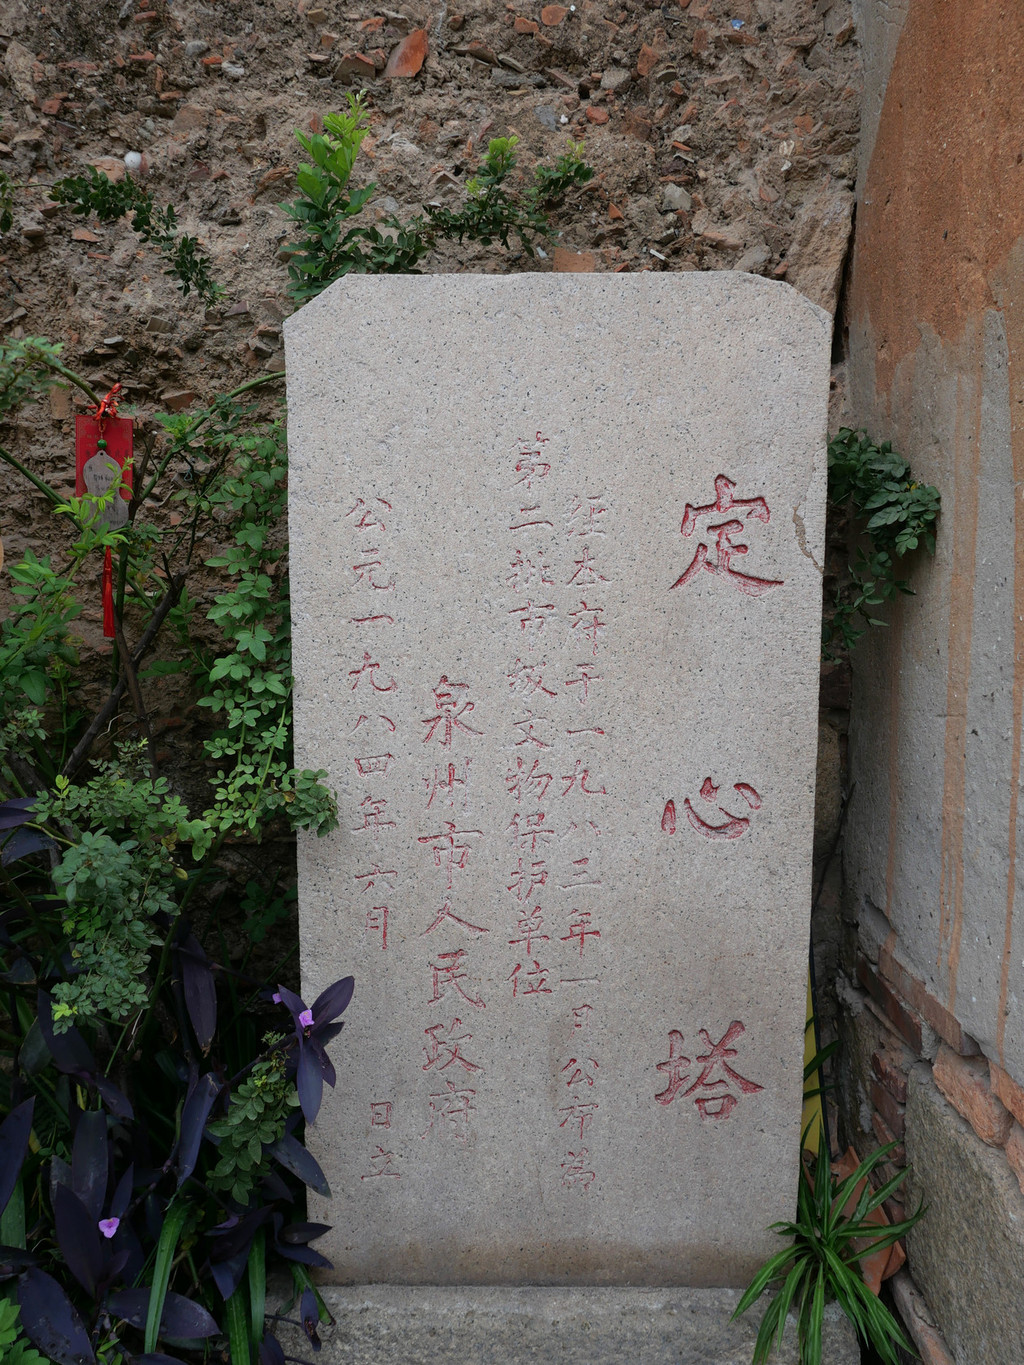 定心塔
经本府于一九八三年一月公布為
第二批市级文物保护单位
泉州市人民政府
公元一九八四年六月 日立